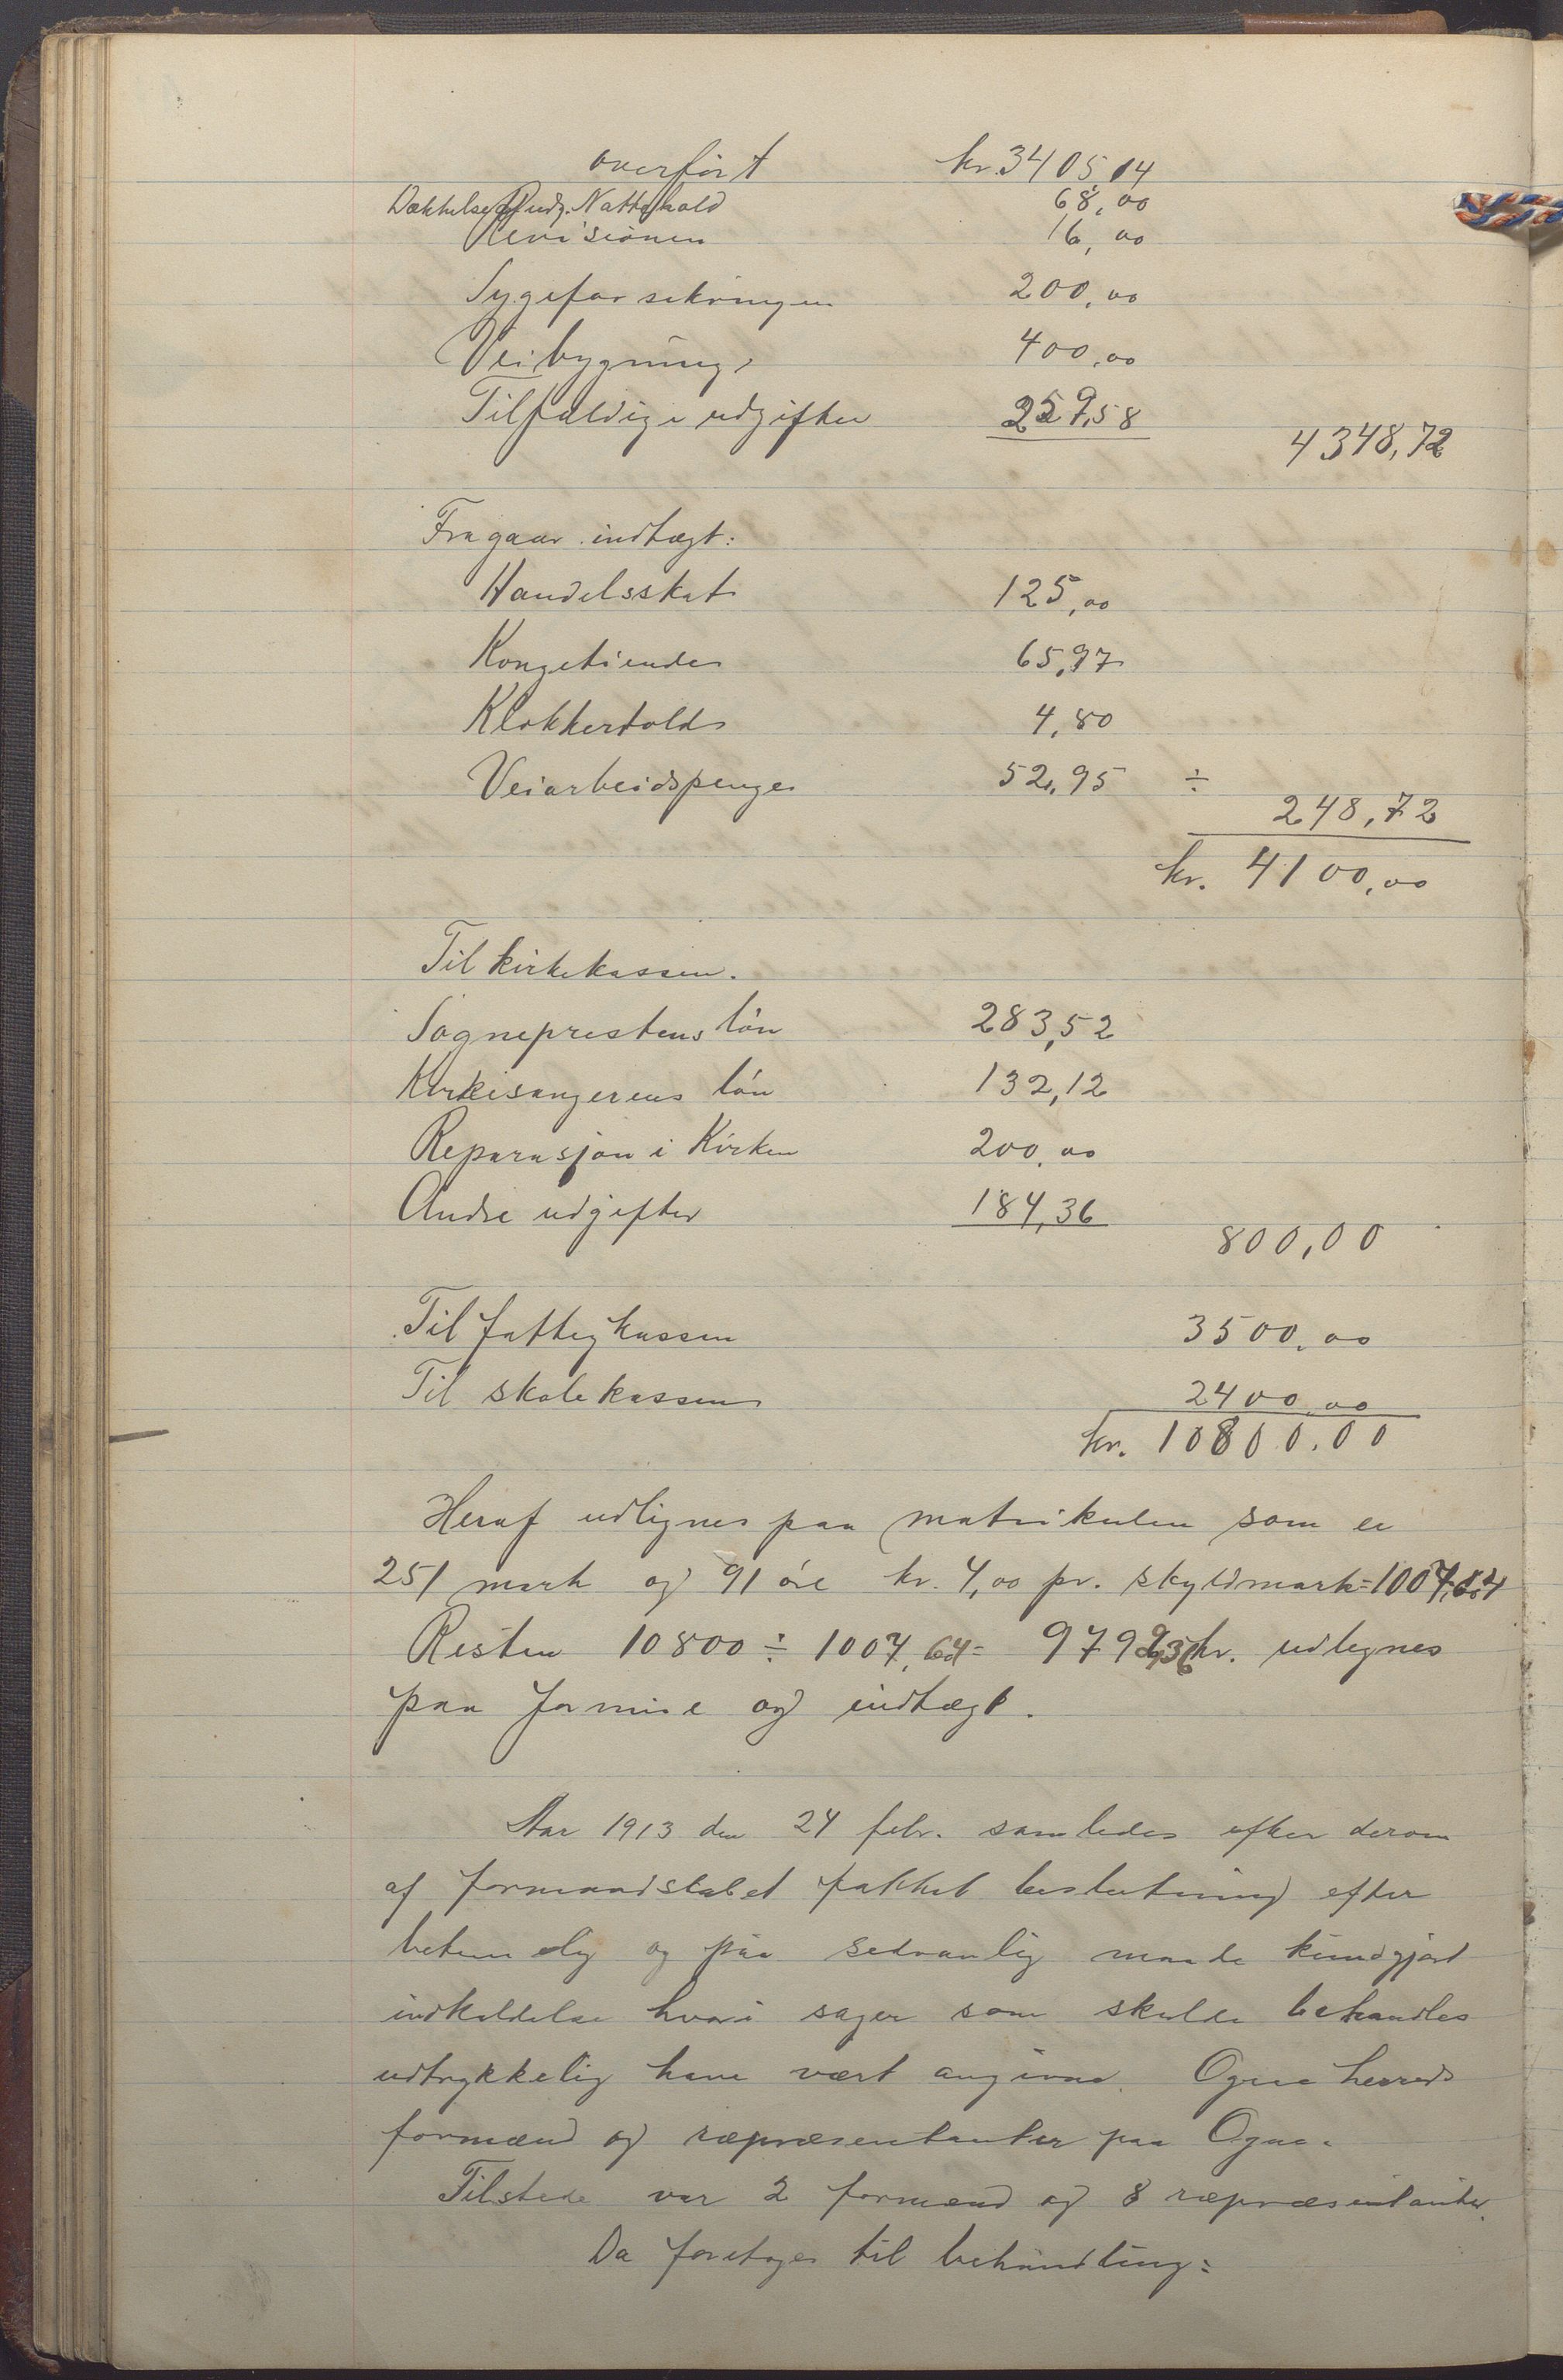 overført kr. 3405,14
Dækkelse af udg. Natteshold 68,00
Revisionen 16,00
Sygeforsikringen 200,00
Veibygning 400,00
Tilfældige udgifter 259,58
4348,72
Fragaar indtægt:
Handelsskat 125,00
Kongetiende 65,97
Klokkertold 4,80
Veiarbeidspenge 52,95 ÷
248,72
kr. 4100,00
Til kirkekassen.
Sogneprestens løn 283,52
Kirkesangerens løn 132,12
Reparasjon i Kirken 200,00
Andre udgifter 184,36
800,00
Til fattigkassen 3500,00
Til skolekassen 2400,00
kr. 10800,00
Heraf udlignes paa matrikulen som er
251 mark og 91 øre kr. 4,00 pr. skyldmark = 1007,64
Resten 10800 ÷ 1007,64 = 9792,36 kr. udlignes
paa formue og indtægt.
Aar 1913 den 24 febr. samledes efter derom
af formandskabet fattet beslutning efter
betimelig og paa sedvanlig maade kundgjort
indkaldelse hvori sager som skulde behandles
udtrykkelig have vært angivne. Ogna herreds
formænd og repræsentanter paa Ogna.
Tilstede var 2 formænd og 8 repræsentanter.
Da foretages til behandling: